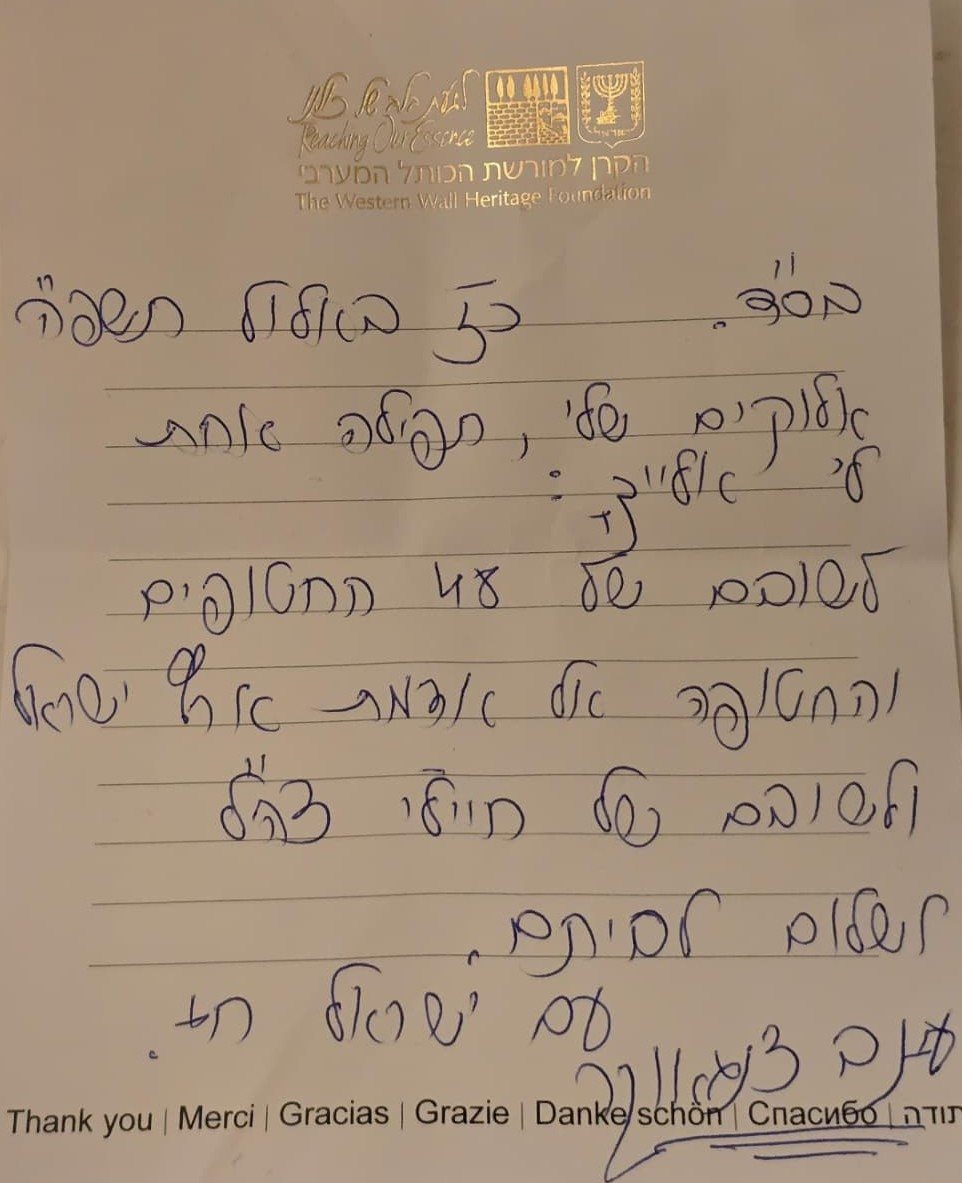 לגעת בלב של כולנו
Reaching Our Essence
הקרן למורשת הכותל המערבי
The Western Wall Heritage Foundation
בס"ד. כז באלול תשפ"ה
אלוקים שלי, תפילה אחת
לי אלייך :
לשובם של החטופים
והחטופה אל אדמת ארץ ישראל
ולשובם של חיילי צה"ל
לשלום לביתם.
עם ישראל חי.
עינב צנגאוקר
Thank you | Merci | Gracias | Grazie | Danke schön | Спасибо | תודה